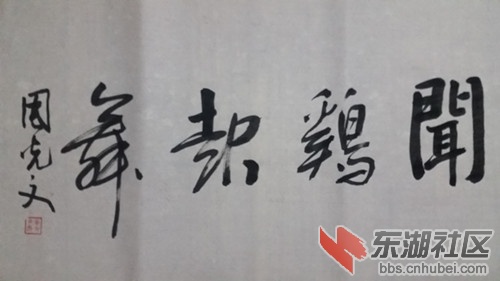 聞鷄起舞
东湖社区
bbs.cnhubei.com